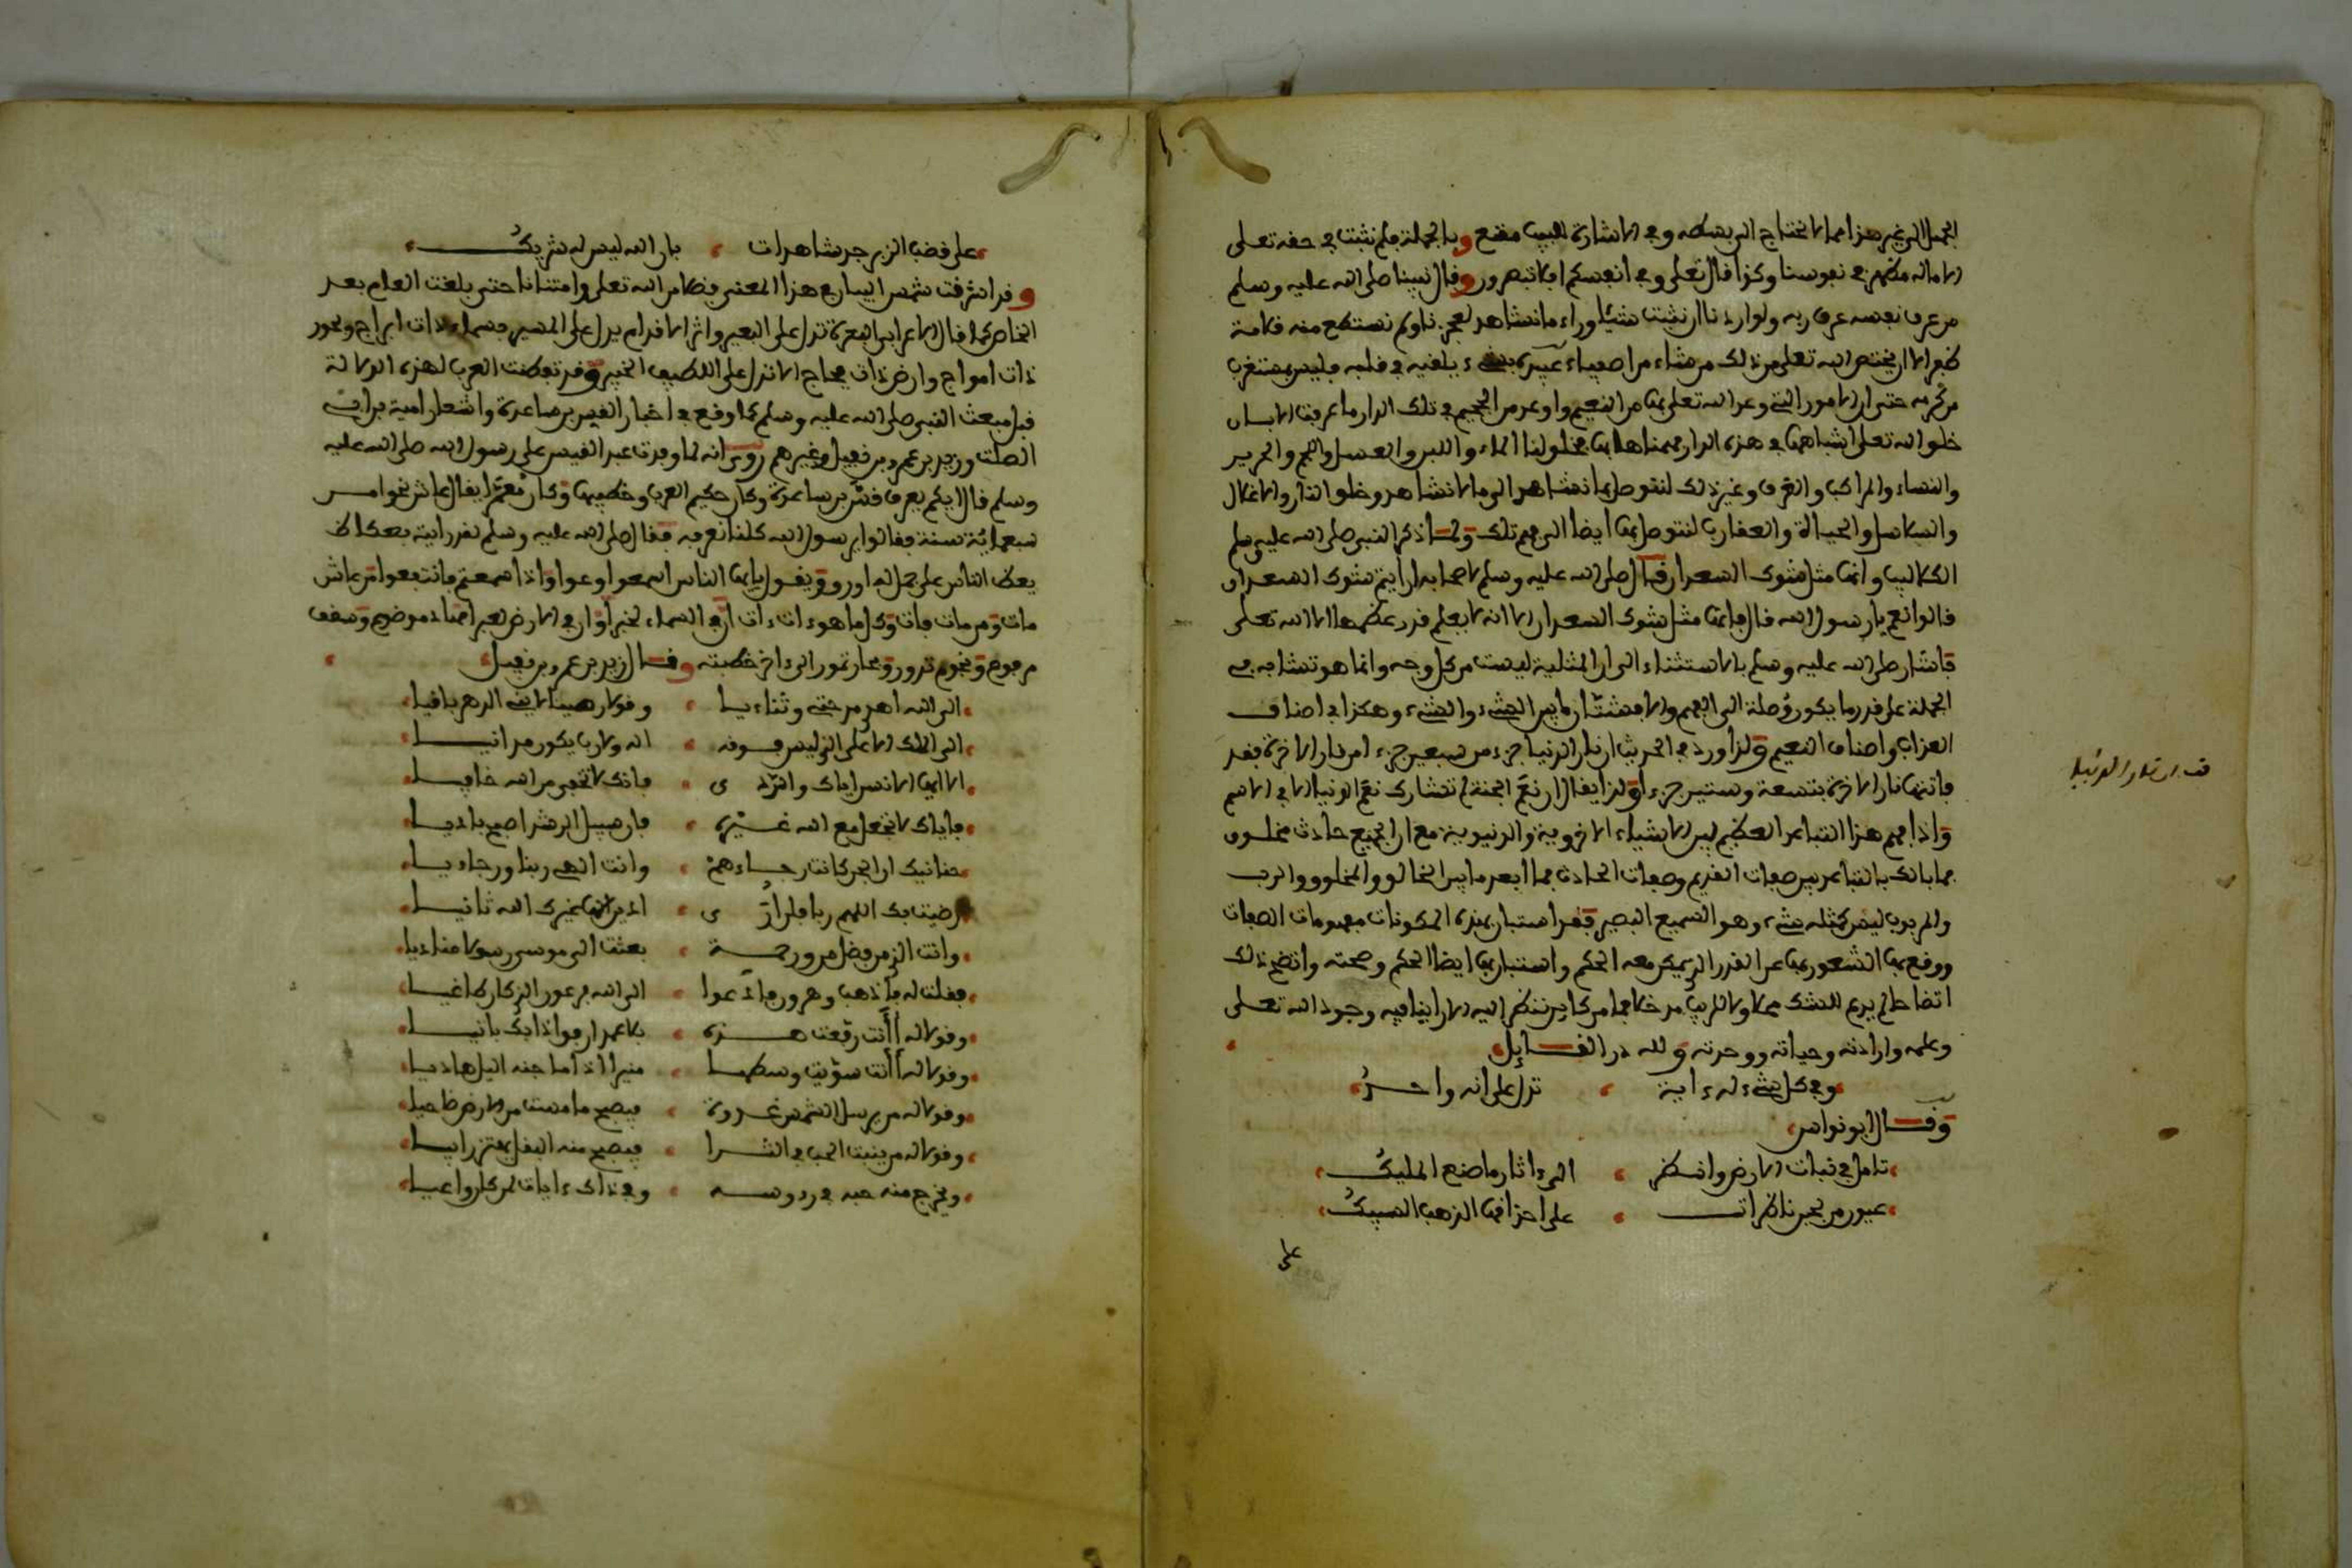 الجمل الى غير هذا مما لا يحتاج الى بسطه وفي الاشارة للبيب مقنع وبالجملة فلم نثبت في حقه تعلى
الا ماله مظهر في نفوسنا وكذا قال تعلى وفي انفسكم افلا تبصرون وقال نبينا صلى الله عليه وسلم
من عرف نفسه عرف ربه ولو اردنا ان نثبت شيئا وراء ما نشاهد لعجزنا ولم نستطع منه قلامة
ظفر الا ان يختص الله تعلى من ذلك من شاء من اصفياء عبيده بشيء يلقيه في قلبه فليس بمستغرب
من كرمه حتى ان الامور التي وعد الله تعلى بها من النعيم واوعد من الجحيم في تلك الدار ما عرفت الا بان
خلق الله تعلى اشباهها في هذه الدار فهمناها بها فخلق لنا الماء واللبن والعسل واللحم والحرير
والنساء والمراكب والغرف وغير ذلك لنتوصل بما نشاهد الى ما لا نشاهد وخلق النار والاغلال
والسلاسل والحيات والعقارب لنتوصل بها ايضا الى فهم تلك ولما ذكر النبي صلى الله عليه وسلم
الكلاليب وانها مثل شوك السعدان قال صلى الله عليه وسلم لاصحابه ارايتم شوك السعدان
قالوا نعم يا رسول الله قال فانها مثل شوك السعدان الا انه لا يعلم قدر عظمها الا الله تعلى
فاشار صلى الله عليه وسلم بالاستثناء الى ان المثلية ليست من كل وجه وانما هو تشابه في
الجملة على قدر ما يكون وصلة الى الفهم والا فشتان ما بين الشيء والشيء وهكذا في اصناف
العذاب واصناف النعيم ولذا ورد في الحديث ان نار الدنيا جزء من سبعين جزءا من نار الاخرة فقد
فاتتها نار الاخرة بتسعة وستين جزءا ولذا يقال ان نعم الجنة لم تشارك نعم الدنيا الا في الاسم
واذا فهم هذا التباين العظيم بين الاشياء الاخروية والدنيوية مع ان الجميع حادث مخلوق
فما بالك بالتباين بين صفات القديم وصفات الحادث فما ابعد ما بين الخالق والمخلوق والرب
والمربوب ليس كمثله شيء وهو السميع البصير فقد استبان بهذه المكونات مفهومات الصفات
ووقع بها الشعور بها عن القدر الذي يمكن معه الحكم واستبان بها ايضا الحكم وصحته واتضح ذلك
اتضاحا لم يدع للشك محلا ولا للريب مدخلا فما من كاين تنظر اليه الا راينا فيه وجود الله تعلى
وعلمه وارادته وحياته ووحدته ولله در القايل
وفي كل شيء له ءاية تدل على انه واحد
وقال ابو نواس
تامل في نبات الارض وانظر الى ءاثار ما صنع المليك
عيون من لجين ناظرات على احداقها الذهب السبيك
على
قف ان نار الدنيا
على قضب الزبرجد شاهدات بان الله ليس له شريك
وقد اشرقت شمس البيان في هذا المعنى فضلا من الله تعلى وامتنانا حتى بلغت العام بعد
الخاص كما قال الاعرابي البعرة تدل على البعير واثر الاقدام يدل على المسير فسماء ذات ابراج وبحور
ذات امواج وارض ذات فجاج الا تدل على اللطيف الخبير وقد تفطنت العرب لهذه الدلالة
قبل مبعث النبي صلى الله عليه وسلم كما وقع في اخبار القيس بن ساعدة واشعار امية بن ابي
الصلت وزيد بن عمرو بن نفيل وغيرهم روي انه لما وفدت عبد القيس على رسول الله صلى الله عليه
وسلم قال ايكم يعرف قس بن ساعدة وكان حكيم العرب وخطيبها وكان معمرا يقال عاش نحوا من
سبعمائة سنة فقالوا يرسول الله كلنا نعرفه فقال صلى الله عليه وسلم لقد رايته بعكاظ
يعظ الناس على جمل له اورق ويقول يا ايها الناس اسمعوا وعوا واذا سمعتم فانتفعوا من عاش
مات ومن مات فات وكل ما هو ءات ءات ان في السماء لخبرا وان في الارض لعبرا مهاد موضوع وسقف
مرفوع ونجوم تدور وبحار تمور الى ءاخر خطبته وقال زيد بن عمرو بن نفيل
الى الله اهدي مدحتي وثناءيا وقولا رصينا لا يني الدهر باقيا
الى الملك الاعلى الذي ليس فوقه اله ولا رب يكون مدانيا
الا ايها الانسان اياك والردى فانك لا تخفي من الله خافيا
فاياك لا تجعل مع الله غيره فان سبيل الرشد اصبح باديا
حنانيك ان الجن كانت رجاءهم وانت الهي ربنا ورجاءيا
رضيت بك اللهم ربا فلن ارى ادين الها غيرك الله ثانيا
وانت الذي من فضل من ورحمة بعثت الى موسى رسولا مناديا
فقلت له فاذهب وهرون فادعوا الى الله فرعون الذي كان طاغيا
وقولا له اانت رفعت هذه بلا عمد ارفق اذا بك بانيا
وقولا له اانت سويت وسطها منيرا اذا ما جنه اليل هاديا
وقولا له من يرسل الشمس غدوة فيصبح ما مست من الارض ضاحيا
وقولا له من ينبت الحب في الثرا فيصبح منه البقل يهتز رابيا
ويخرج منه حبه في رءوسه وفي ذاك ءايات لمن كان واعيا